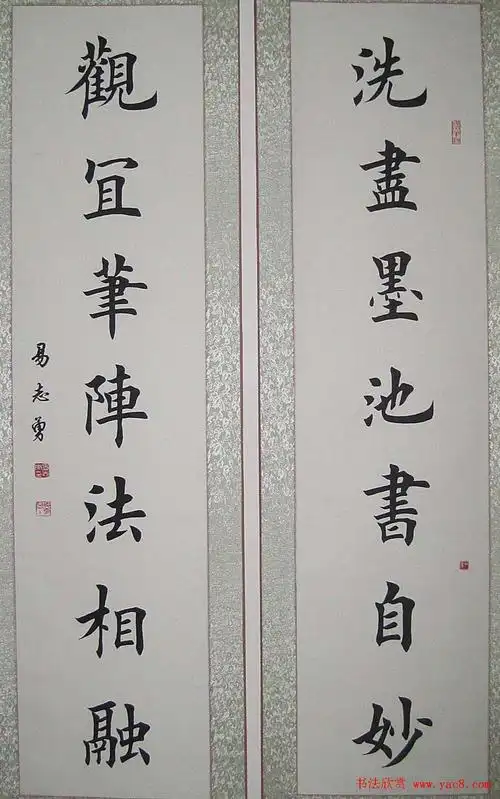 洗盡墨池書自妙
觀冝筆陣法相融
易志勇
书法欣赏
www.yac8.com